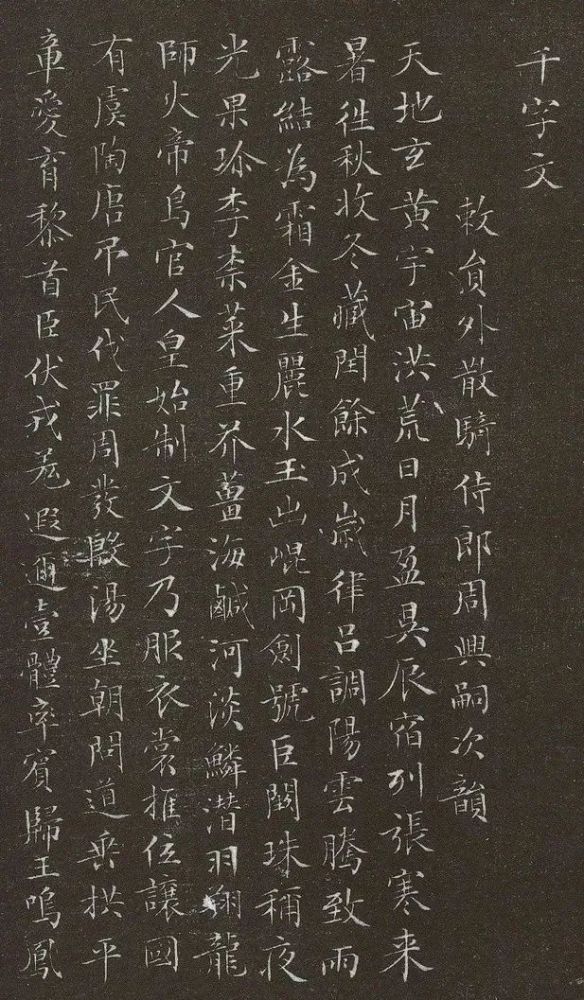 千字文
敕貟外散騎侍郎周興嗣次韻
天地玄黄宇宙洪荒日月盈昃辰宿列張寒来
暑往秋收冬藏閏餘成歲律吕調陽雲騰致雨
露結為霜金生麗水玉出崐岡劍號巨闕珠稱夜
光果珍李柰菜重芥薑海鹹河淡鱗潜羽翔龍
師火帝鳥官人皇始制文字乃服衣裳推位讓國
有虞陶唐弔民伐罪周發殷湯坐朝問道垂拱平
章愛育黎首臣伏戎羌遐邇壹體率賓歸王鳴鳳